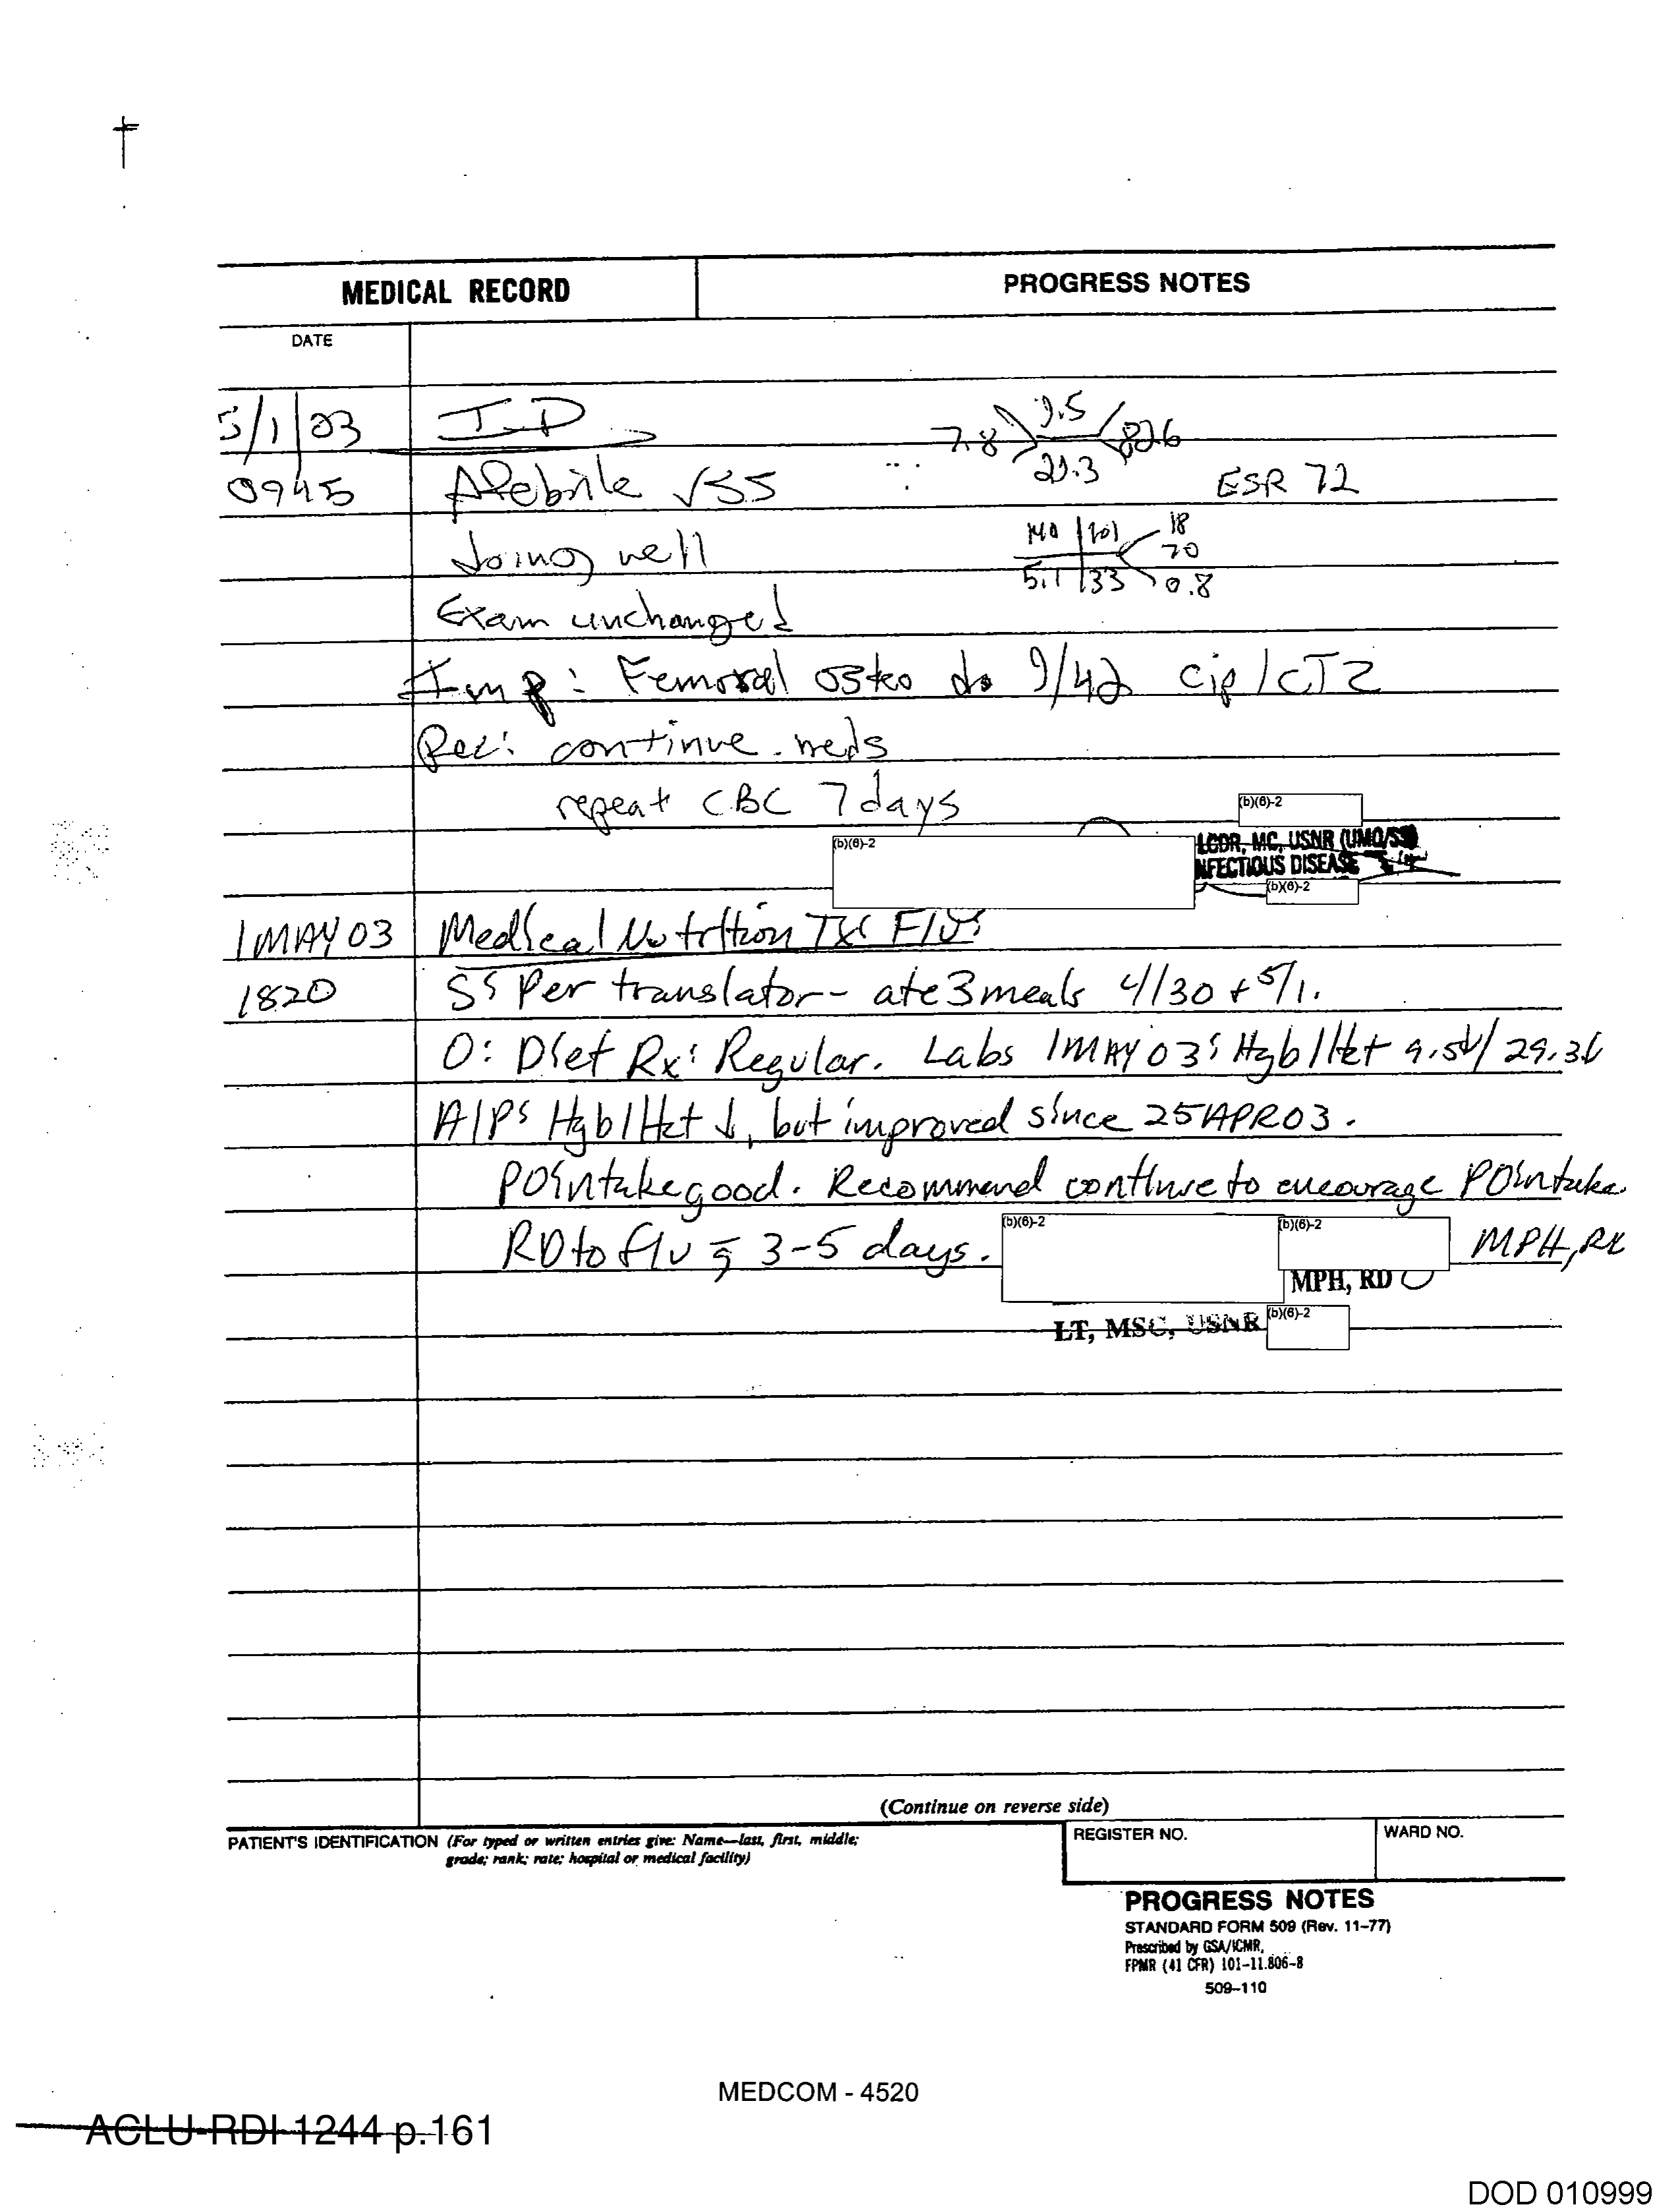 MEDICAL RECORD
PROGRESS NOTES
DATE
5/1/03 ID
7.8 9.5 826 29.3
0945 Afebrile VSS ESR 72
doing well 140 101 18 70
5.1 33 0.8
Exam unchanged
Imp: Femoral osteo d 9/42 cip/CTZ
Rec: continue meds
repeat CBC 7 days
(b)(6)-2
(b)(6)-2
LCDR, MC, USNR (UMO/SS)
INFECTIOUS DISEASE
(b)(6)-2
1MAY03 Medical Nutrition Tx: F/U:
1820 S: Per translator- ate 3 meals 4/30 + 5/1.
O: Diet Rx: Regular. Labs 1MAY03: Hgb/Hct 9.5↓/29.3↓
A/P: Hgb/Hct ↓, but improved since 25APR03.
PO intake good. Recommend continue to encourage PO intake.
RD to f/u 3-5 days. (b)(6)-2 (b)(6)-2 MPH, RD
MPH, RD
LT, MSC, USNR (b)(6)-2
(Continue on reverse side)
PATIENT'S IDENTIFICATION (For typed or written entries give: Name—last, first, middle;
grade; rank; rate; hospital or medical facility)
REGISTER NO.
WARD NO.
PROGRESS NOTES
STANDARD FORM 509 (Rev. 11-77)
Prescribed by GSA/ICMR,
FPMR (41 CFR) 101-11.806-8
509-110
MEDCOM - 4520
ACLU-RDI 1244 p.161
DOD 010999